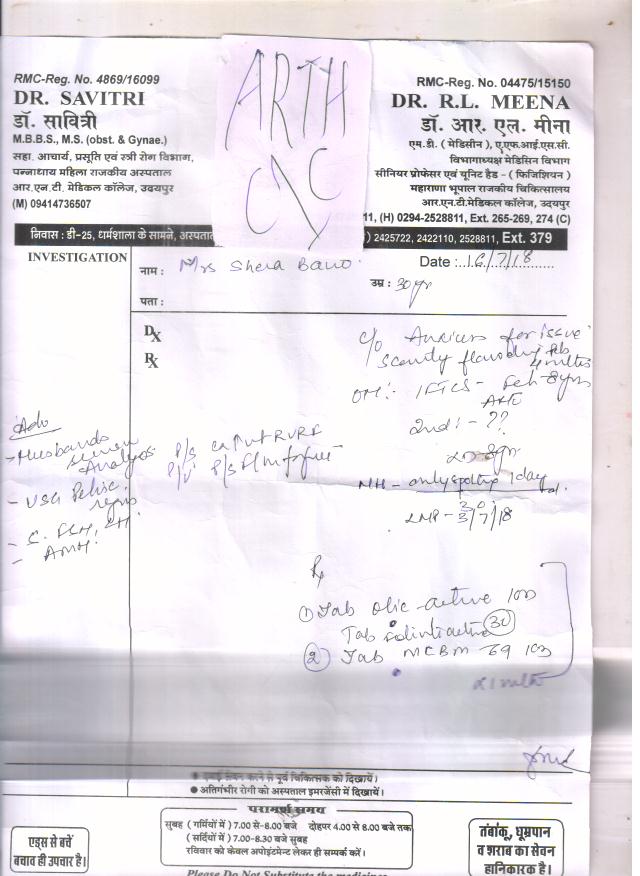 ARTH
CYC
RMC-Reg. No. 4869/16099
DR. SAVITRI
डॉ. सावित्री
M.B.B.S., M.S. (obst. & Gynae.)
सहा. आचार्य, प्रसूति एवं स्त्री रोग विभाग,
पन्नाधाय महिला राजकीय अस्पताल
आर.एन.टी. मेडिकल कॉलेज, उदयपुर
(M) 09414736507
RMC-Reg. No. 04475/15150
DR. R.L. MEENA
डॉ. आर. एल. मीना
एम.डी. ( मेडिसीन ), ए.एफ.आई.एस.सी.
विभागाध्यक्ष मेडिसिन विभाग
सीनियर प्रोफेसर एवं यूनिट हैड - ( फिजिशियन )
महाराणा भूपाल राजकीय चिकित्सालय
आर.एन.टी.मेडिकल कॉलेज, उदयपुर
11, (H) 0294-2528811, Ext. 265-269, 274 (C)
निवास : डी-25, धर्मशाला के सामने, अस्पताल
) 2425722, 2422110, 2528811, Ext. 379
INVESTIGATION
नाम : Mrs Shera Bano
Date :..16/7/18
उम्र : 30yr
पता :
DX
RX
c/o Anxious for issue
scanty flow
OH:-
2nd :- ??
MH - only spotting 1 day
LMP - 3/7/18
Adv
- Husbands semen Analysis
- USG Pelvic
- S. FSH, LH,
- AMH.
P/S
P/V
Rx
① Tab olic-active 10D
Tab 30
② Tab MCBM 69 10D
x 1 mth
● दवाई सेवन करने से पूर्व चिकित्सक को दिखायें।
● अतिगंभीर रोगी को अस्पताल इमरजेंसी में दिखायें।
परामर्श समय
सुबह ( गर्मियों में ) 7.00 से-8.00 बजे दोहपर 4.00 से 8.00 बजे तक
( सर्दियों में ) 7.00-8.30 बजे सुबह
रविवार को केवल अपोइंटमेन्ट लेकर ही सम्पर्क करें।
एड्स से बचें
बचाव ही उपचार है।
तंबाकू, धूम्रपान
व शराब का सेवन
हानिकारक है।
Please Do Not Substitute the medicines